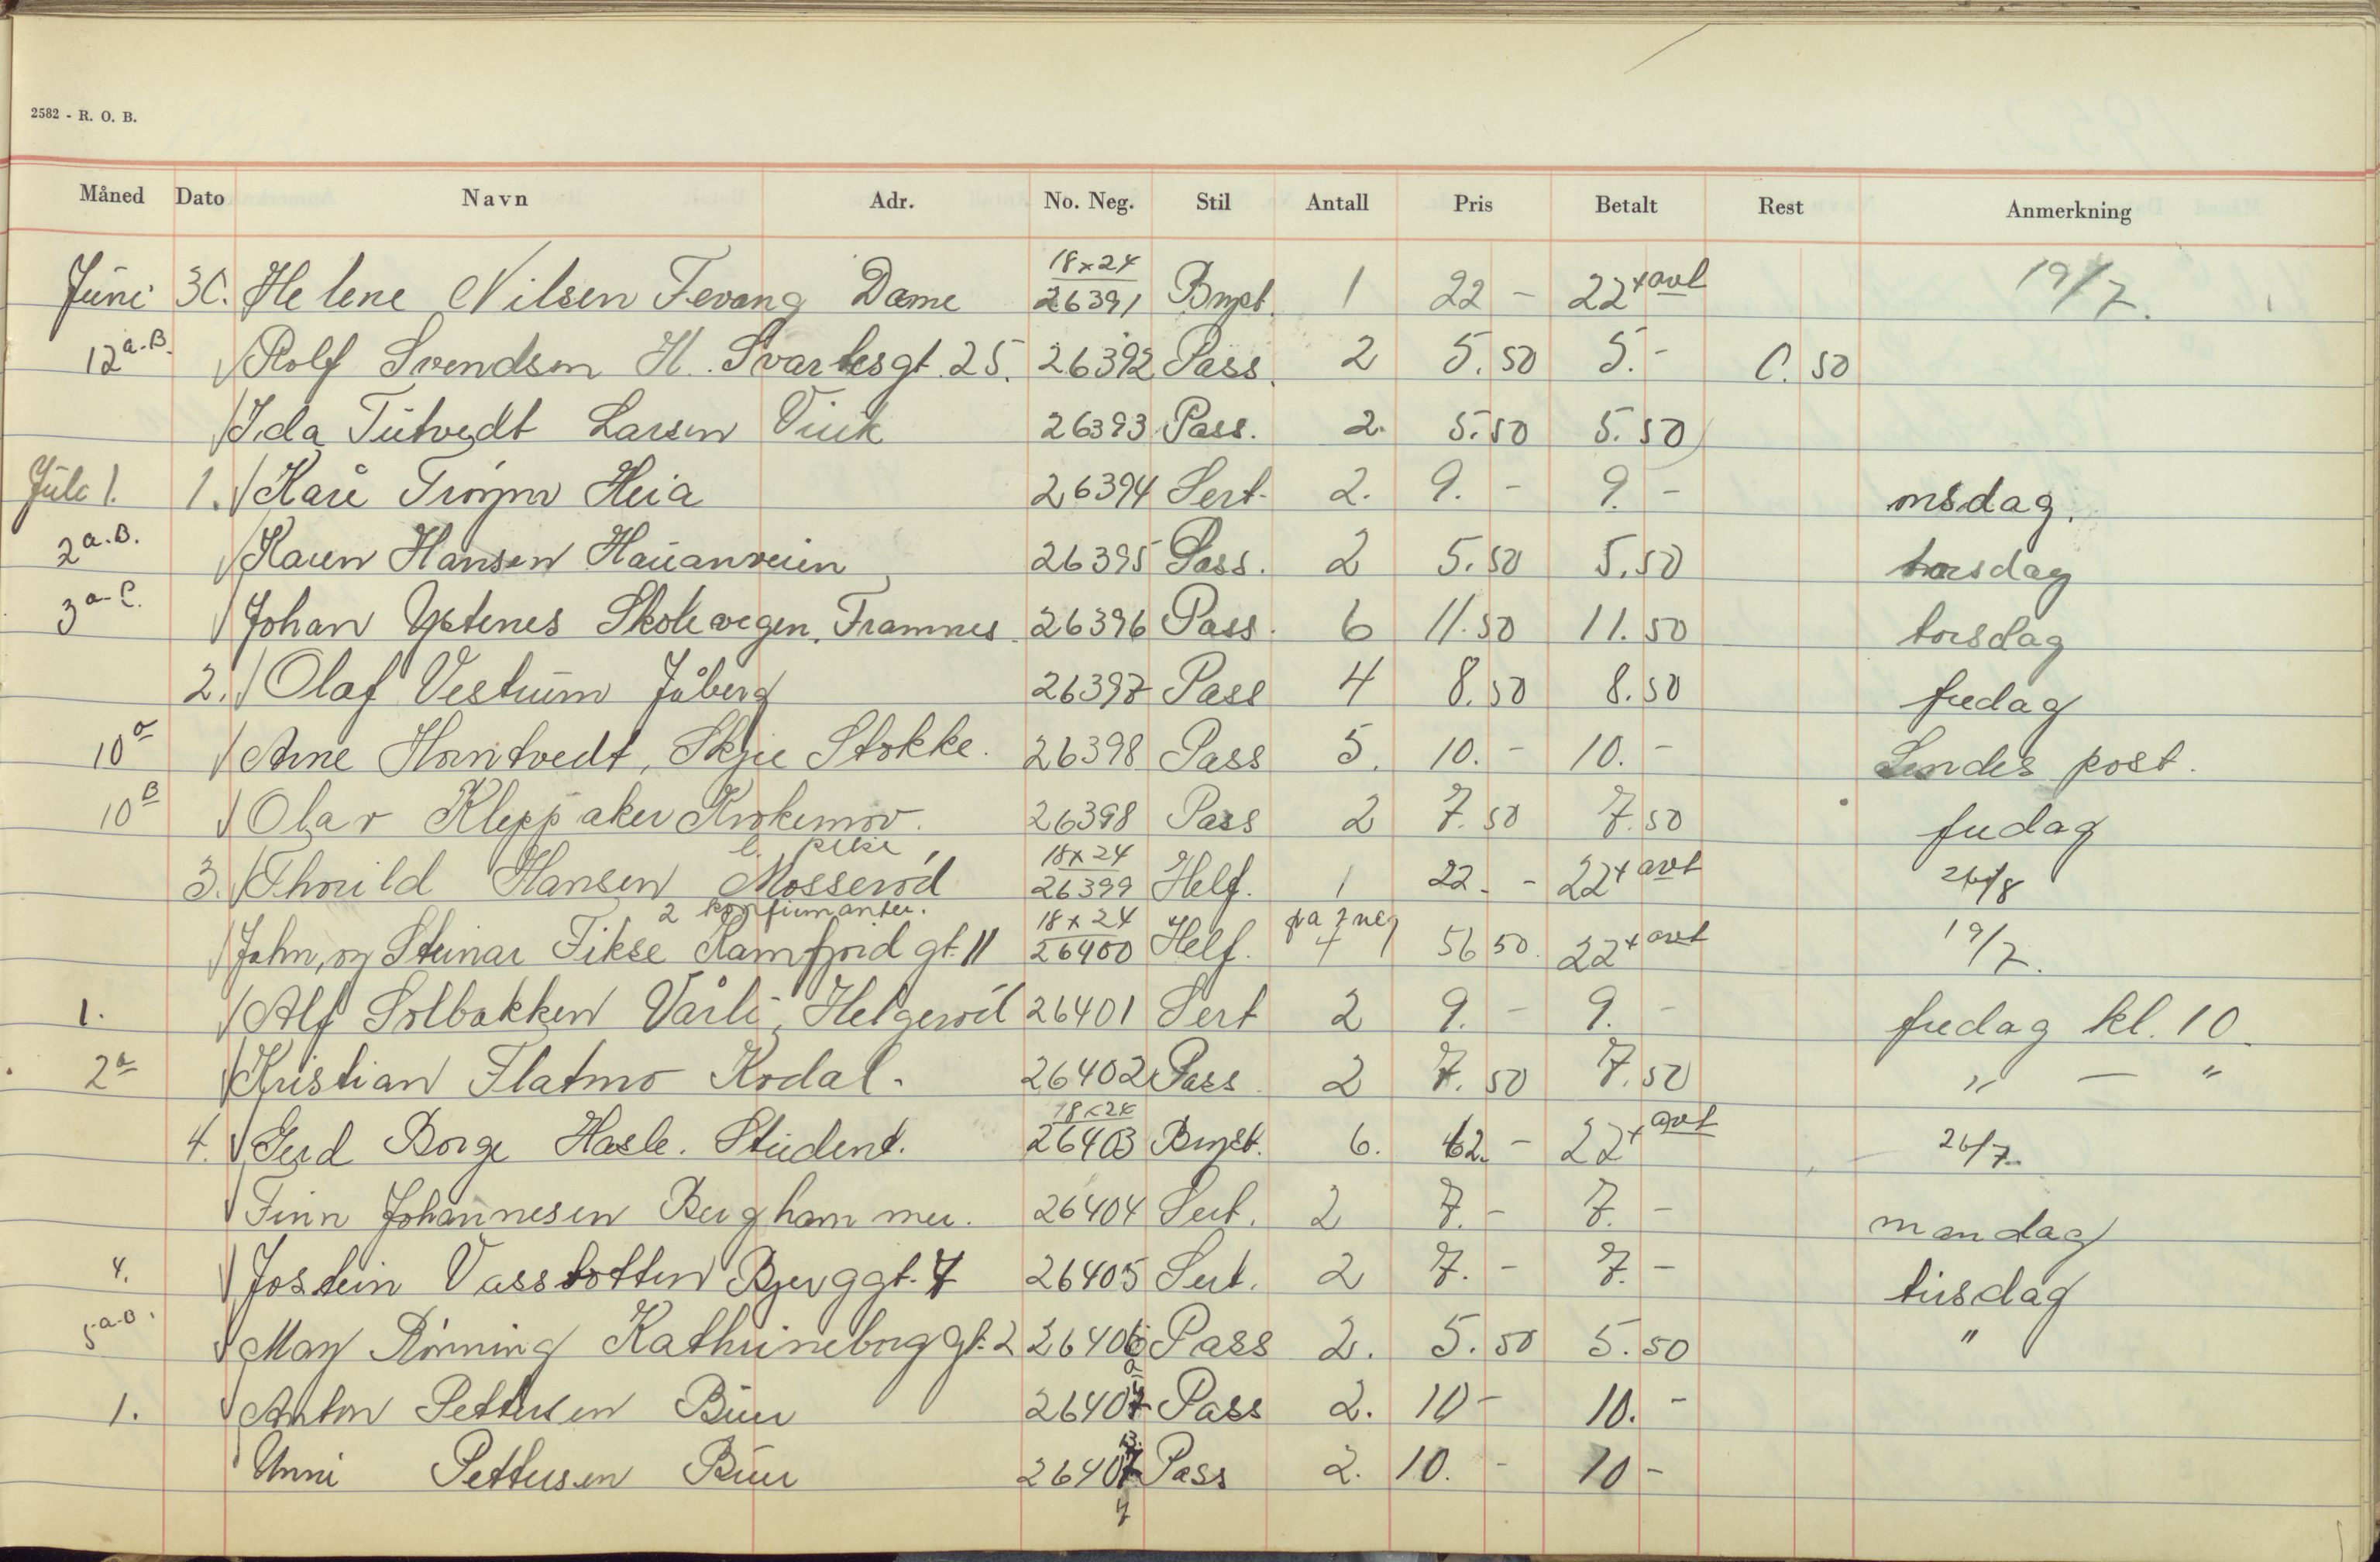 2582 - R. O. B.
Måned Dato Navn Adr. No. Neg. Stil Antall Pris Betalt Rest Anmerkning
18x24
Juni 30. Helene Nilsen Fevang Dame 26391 Bryst. 1 22 - 22 + avt 19/7.
12 a.B. Rolf Svendsen H. Svartesgt. 25. 26392 Pass. 2 5.50 5.- 0.50
Ida Tutvedt Larsen Viuk 26393 Pass. 2. 5.50 5.50
Juli 1. 1. Kåre Heia 26394 Sert. 2. 9. - 9. - onsdag.
2 a.B. Karen Hansen Hauanveien 26395 Pass. 2 5.50 5.50 torsdag
3 a- C. Johan Ystenes Skolevegen, Framnes 26396 Pass. 6 11.50 11.50 torsdag
2. Olaf Vestrum Jåberg 26397 Pass 4 8.50 8.50 fredag
10 a Arne Horntvedt, Skjee Stokke. 26398 Pass 5. 10. - 10. - Sendes post.
10 B Olav Kleppaker Krokemov. 26398 Pass 2 7.50 7.50 fredag
l. pike 18x24
3. Thorild Hansen Mosserød 26399 Helf. 1 22. - 22 + avt 26/8
2 konfirmanter. 18x24 fra 2 neg
John, og Steinar Fikse Kamfjord gt. 11 26400 Helf. 7 56 50. 22 + avt 19/7.
1. Alf Solbakken Vårli, Helgerød 26401 Sert 2 9. - 9. - fredag kl. 10.
2 a Kristian Flatmo Kodal. 26402 Pass 2 7.50 7.50 " — "
18x24
4. Gerd Borge Hasle. Student. 26403 Bryst. 6. 62. - 22 + avt 26/7.
Finn Johannesen Berghammer. 26404 Sert. 2 7. - 7. - mandag
4. Jostein Vasstotten Bjerggt. 7 26405 Sert. 2 7. - 7. - tirsdag
5 a.B. May Rønning Kathrineborg gt. 2 26406 Pass 2. 5.50 5.50 "
a
1. Anton Pettersen Buer 26407 Pass 2. 10 - 10. -
B.
Unni Pettersen Buer 26407 Pass 2. 10. - 10 -
7